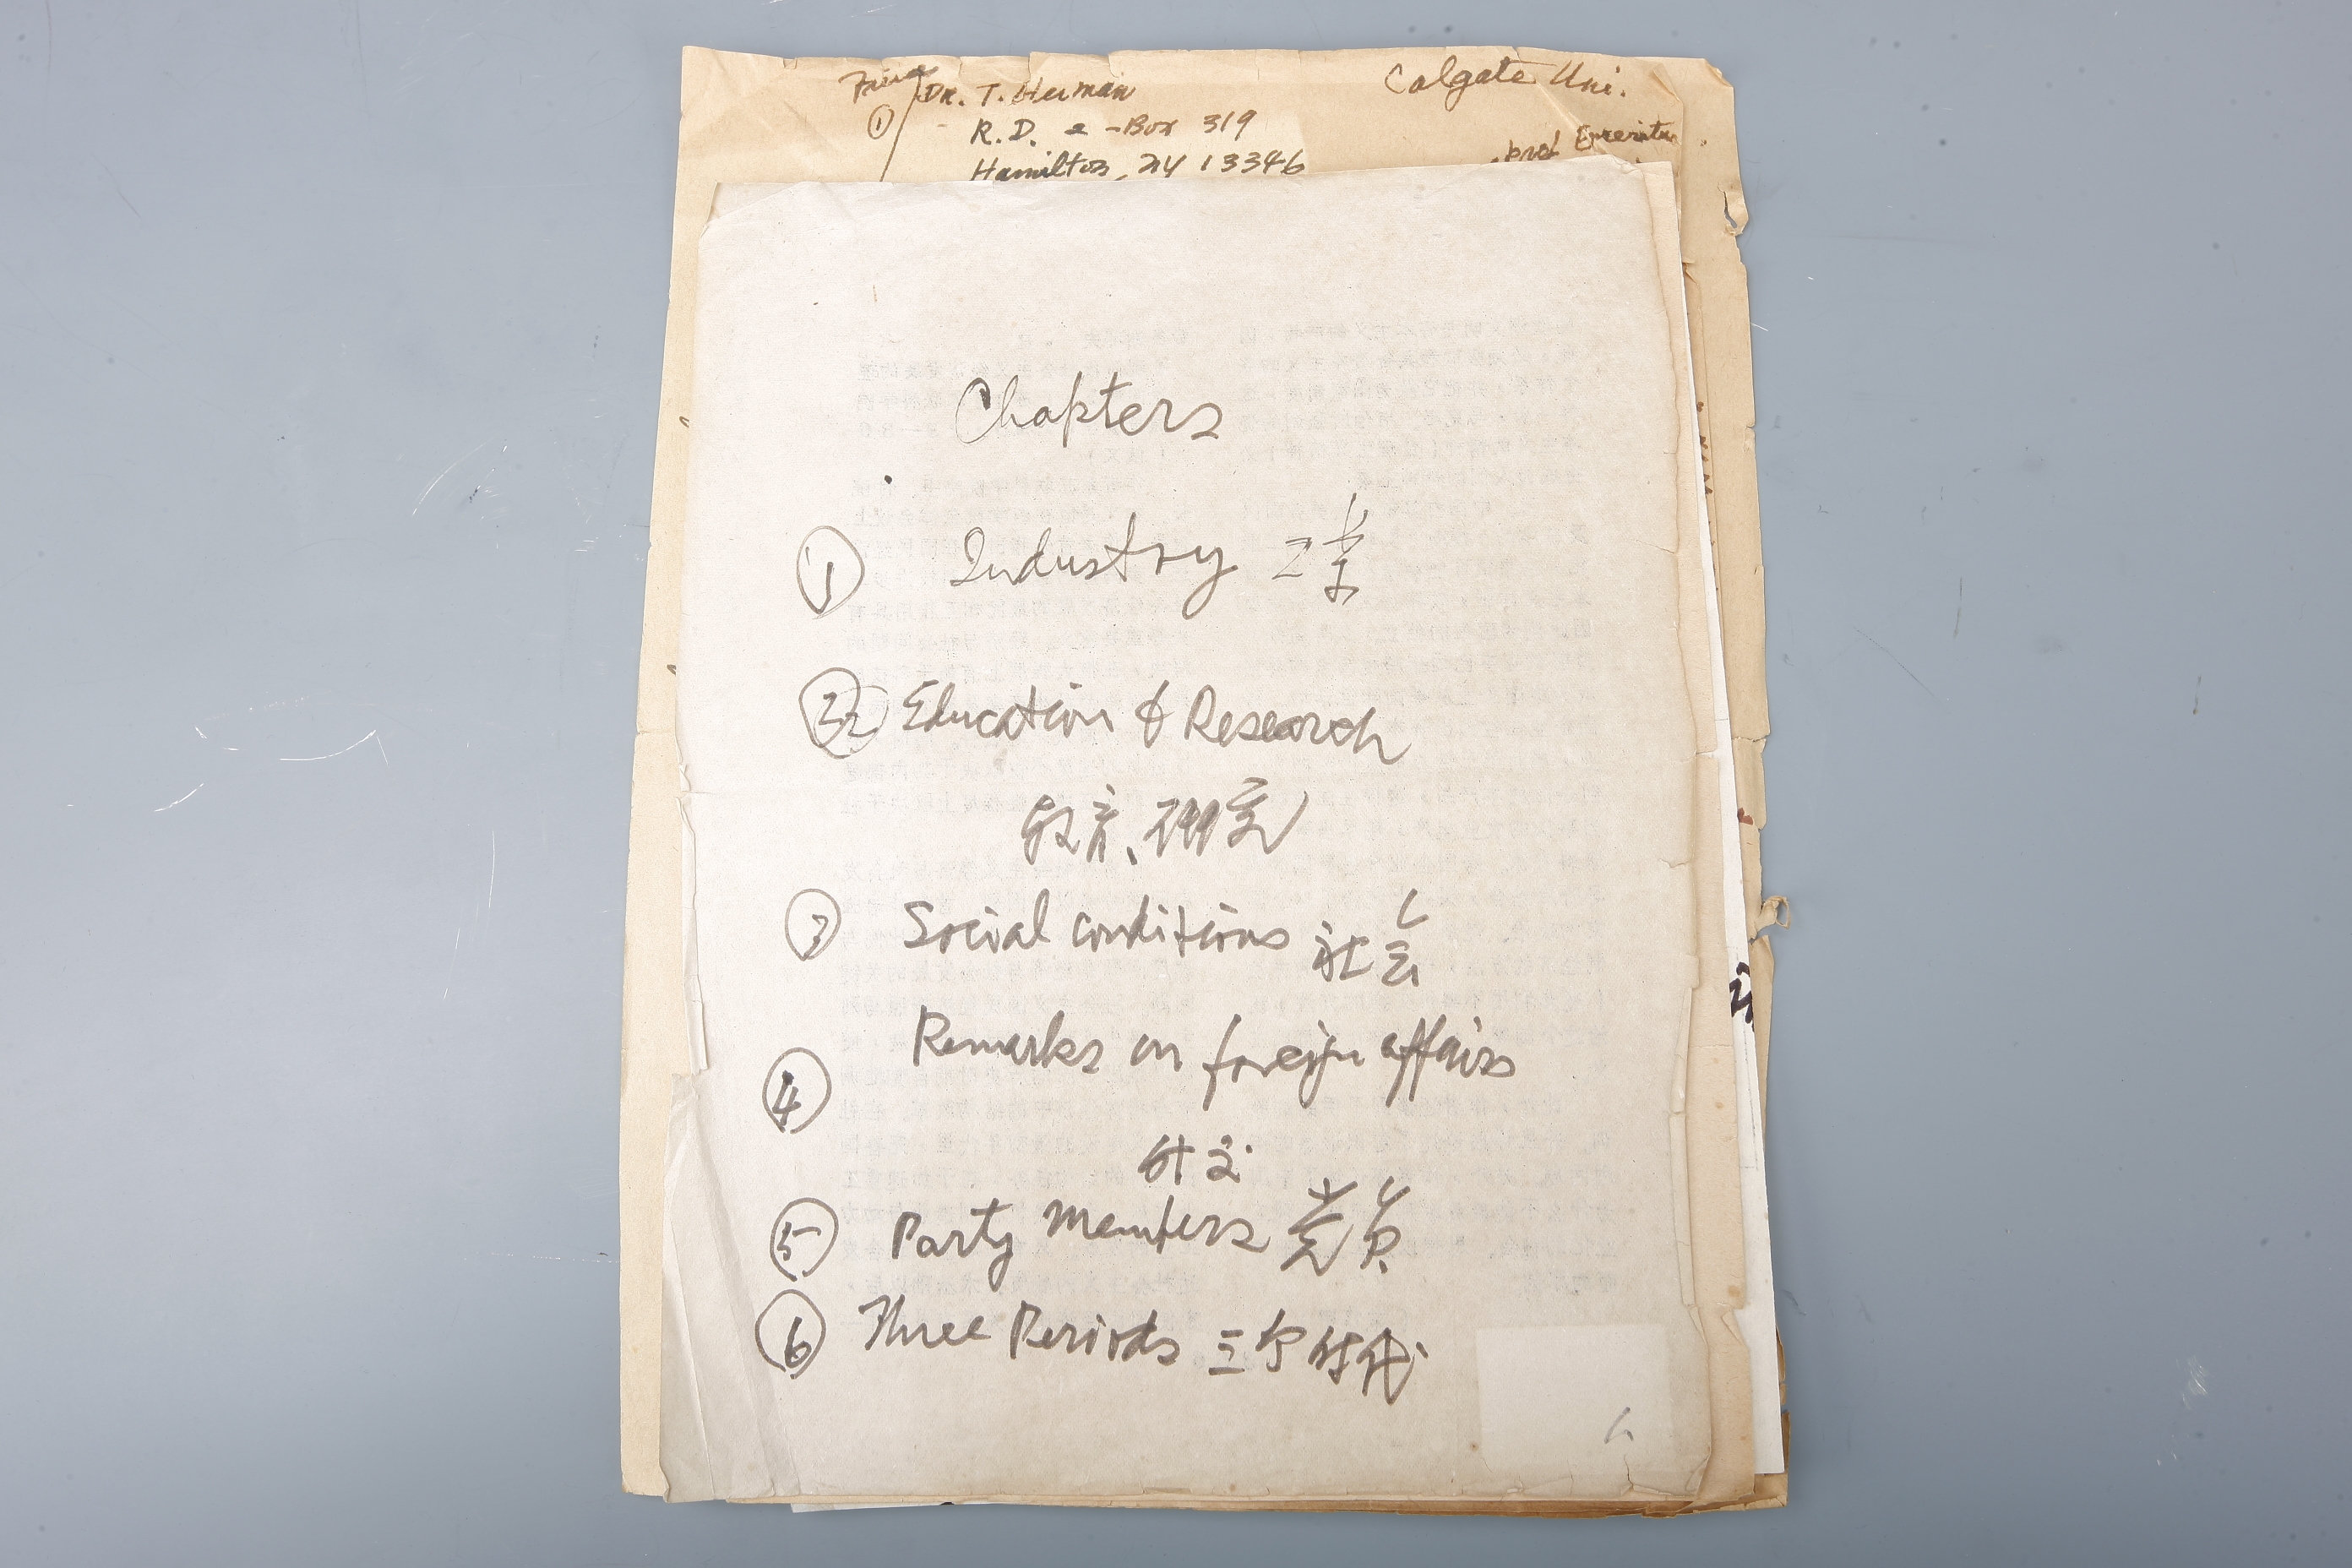 Dr. T. Herman
Colgate Uni.
①
R.D. 2 - Box 319
Hamilton, NY 13346
Chapters
① Industry 工業
② Education & Research
教育、研究
③ Social conditions 社会
④ Remarks on foreign affairs
外交
⑤ Party Members 党员
⑥ Three Periods 三个时代